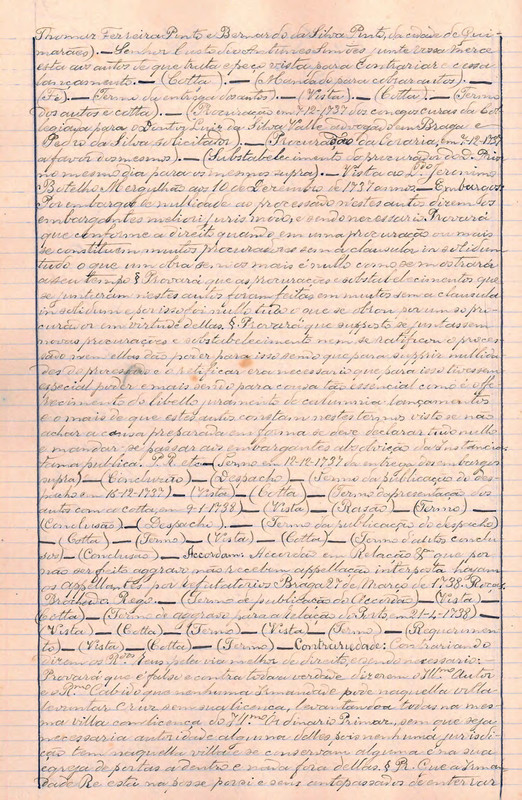 Thomaz Ferreira Pinto e Bernardo da Silva Pinto, da cidade de Gui-
marães). — Senhor Custodio Antunes Simões junte vossa merce
esta aos autos de que trata e peço vista para Contrariar e cessa
lançamento. — (Cotta). — (Mandado para cobrar autos). —
(Fé). — Termo da entrega dos autos). — (Vista). — (Cotta). — (Termo
dos autos e cotta). — (Procuração em 7-12-1737 dos conegos curas da Col-
legiada para os Doutor Luiz da Silva Valle advogado em Braga e
Pedro da Silva solicitador). — (Procuração da Coraria, em 7-12-1737
a favor dos mesmos). — (Substabelecimento do procurador do D. Prior
no mesmo dia para os mesmos supra). — Vista ao L.do Jeronimo
Botelho Mergulhão aos 10 de Dezembro de 1737 annos. — Embargos:
Por embargos de nullidade ao processado nestes autos dizem os
embargantes meliori juris modo, e sendo necessario. Provará
que conforme a direito quando em uma procuração ou mais
se constituem muitos procuradores sem a clausula in solidum
tudo o que um obra sem os mais é nullo como se mostrará
a seu tempo § Provará que as procurações e substabelecimentos que
se juntaram nestes autos foram feitas em muitos sem a clausula
in solidum e por isso foi nullo tudo o que se obrou por um só pro-
curador em virtude dellas. § Provará que supposto se juntassem
novas procurações e substabelecimento nem se ratificou o proces-
sado nem ellas dão poder para isso senão que para supprir nullida-
des do processo e o retificar era necessario que para isso tivessem
especial poder e mais sendo para cousa tão essencial como é o offe-
recimento do libello juramento de calumnia lançamentos
e o mais de que estes autos constam nestes termos visto se não
achar a causa preparada em forma se deve declarar tudo nullo
e mandar se passar aos embargantes absolvição da Instancia
Fama publica. P. R. etc — (Termo em 12-12-1737 da entrega dos embargos
supra) — (Conclusão) — (Despacho) — (Termo da publicação do Des-
pacho em 15-12-1737) — (Vista) — (Cotta) — (Termo da presentação dos
autos com as cottas, em 9-1-1738) — (Vista) — (Rasão) — (Termo) —
(Conclusão) — (Despacho). — (Termo da publicação do despacho)
— (Cotta) — (Termo) — (Vista) — (Cotta) — (Termo d'autos conclu-
sos) — (Conclusão) — Accordam: Accordão em Relação &.ª que por
não ser feito aggravo não recebem appellação interposta hajam
os Appellantes por refutatorios Braga 27 de Março de 1738.
Rego. — (Termo de publicação do Accordão) — (Vista)
(Cotta) — (Termo de aggravo para a relação do Porto, em 21-4-1738) —
(Vista) — (Cotta) — (Termo) — (Vista) — (Termo) — (Requerimen-
to) — (Vista) — (Cotta) — (Termo) — Contrariedade: Contrariando
dizem os R.dos Reus pela via melhor de direito, e sendo necessario: —
Provará que é falso e contra toda a verdade dizerem o Ill.mo Autor
e o R.mo Cabido que nenhuma Irmandade pode naquella villa
levantar Cruz sem sua licença, levantando a todas na mes-
ma villa com licença do Ill.mo Ordinario Primaz, sem que seja
necessaria autoridade alguma delles, pois nenhuma jurisdi-
cção tem naquella villa e só conservam alguma e na sua
egreja de portas a dentro e nada fora dellas. § P. Que a Irman-
dade Ré está na posse por si e seus antepassados de enterrar